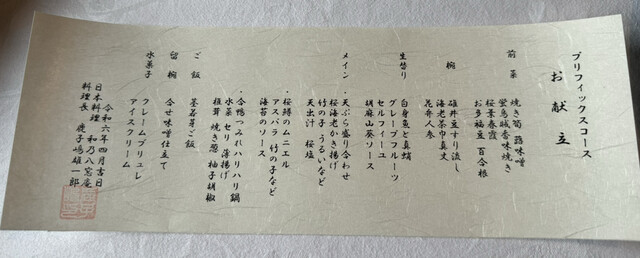 プリフィックスコース
お献立
前菜
焼き筍 蕗味噌
蛍烏賊香味焼き
桜葉春霞
お多福豆 百合根
椀
碓井豆すり流し
海老茶巾真丈
花弁人参
生替り
白身魚と真蛸
グレープフルーツ
セルフィーユ
胡麻山葵ソース
メイン
・天ぷら盛り合わせ
桜海老かき揚げ
竹の子、うるいなど
天出汁 桜塩
・桜鱒のムニエル
アスパラ 竹の子など
海苔のソース
・合鴨つみれハリハリ鍋
水菜 セリ 薄揚げ
椎茸 焼き葱 柚子胡椒
ご飯
生若芽ご飯
留椀
合せ味噌仕立て
水菓子
クレームブリュレ
アイスクリーム
令和六年四月吉日
日本料理 和乃八窓庵
料理長 鹿子嶋雄一郎